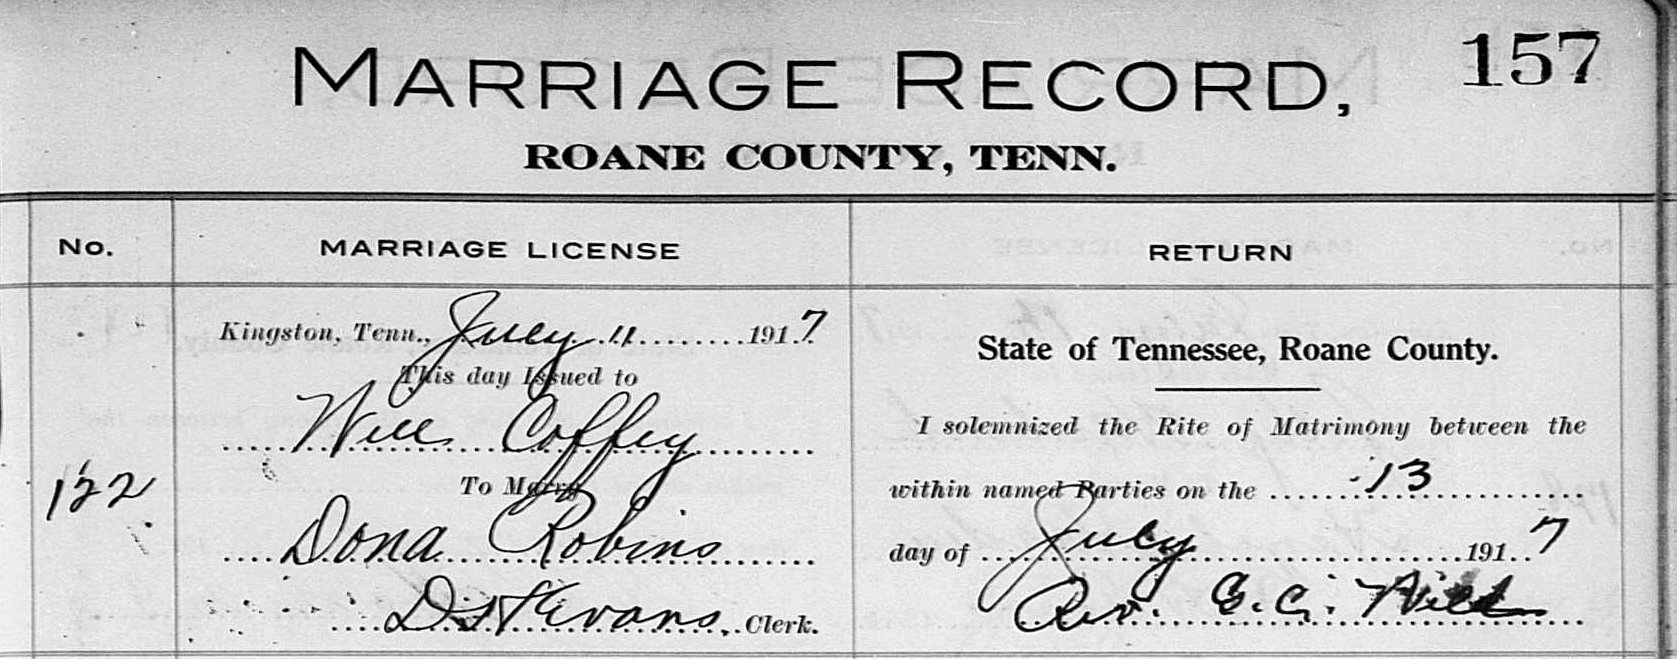 157
MARRIAGE RECORD,
ROANE COUNTY, TENN.
No.
MARRIAGE LICENSE
RETURN
Kingston, Tenn., July 11 1917
This day Issued to
Will Coffey
To Marry
122
Dona Robins
Evans, Clerk.
State of Tennessee, Roane County.
I solemnized the Rite of Matrimony between the
within named Parties on the 13
day of July 1917
Rev. G. C.